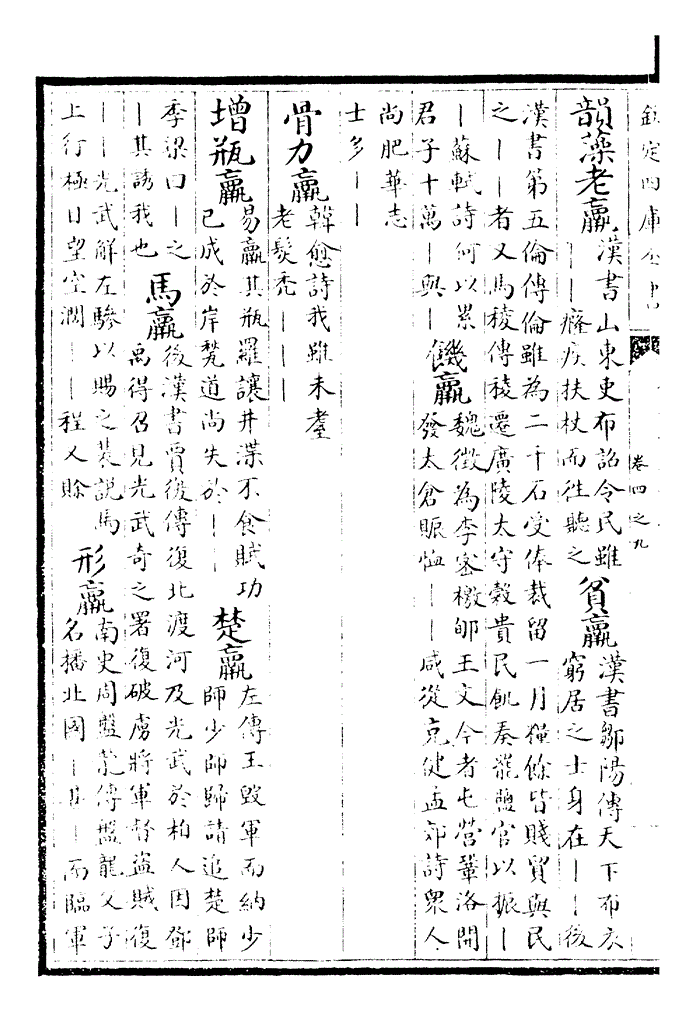 欽定四庫全書
卷四之九
韻藻老羸漢書山東吏布詔令民雖｜｜癃疾扶杖而往聽之貧羸漢書鄒陽傳天下布衣窮居之士身在｜｜後
漢書第五倫傳倫雖為二千石受俸裁留一月糧餘皆賤貿與民
之｜｜者又馬稜傳稜遷廣陵太守穀貴民飢奏罷鹽官以振｜
｜蘇軾詩何以累君子十萬｜與｜饑羸魏徵為李密檄郇王文今者屯營鞏洛開發太倉賑恤｜｜咸從克健孟郊詩衆人
尚肥華志
士多｜｜
骨力羸韓愈詩我雖未耋老髮禿｜｜｜
增瓶羸易羸其瓶羅讓井渫不食賦功已成於岸甃道尚失於｜｜楚羸左傳王毀軍而納少師少師歸請追楚師
季梁曰｜之｜其誘我也馬羸後漢書賈復傳復北渡河及光武於柏人因鄧禹得召見光武奇之署復破虜將軍督盜賊復
｜｜光武解左驂以賜之裴説馬上行極日望空濶｜｜程人賒形羸南史周盤龍傳盤龍父子名播北國｜甚｜而臨軍